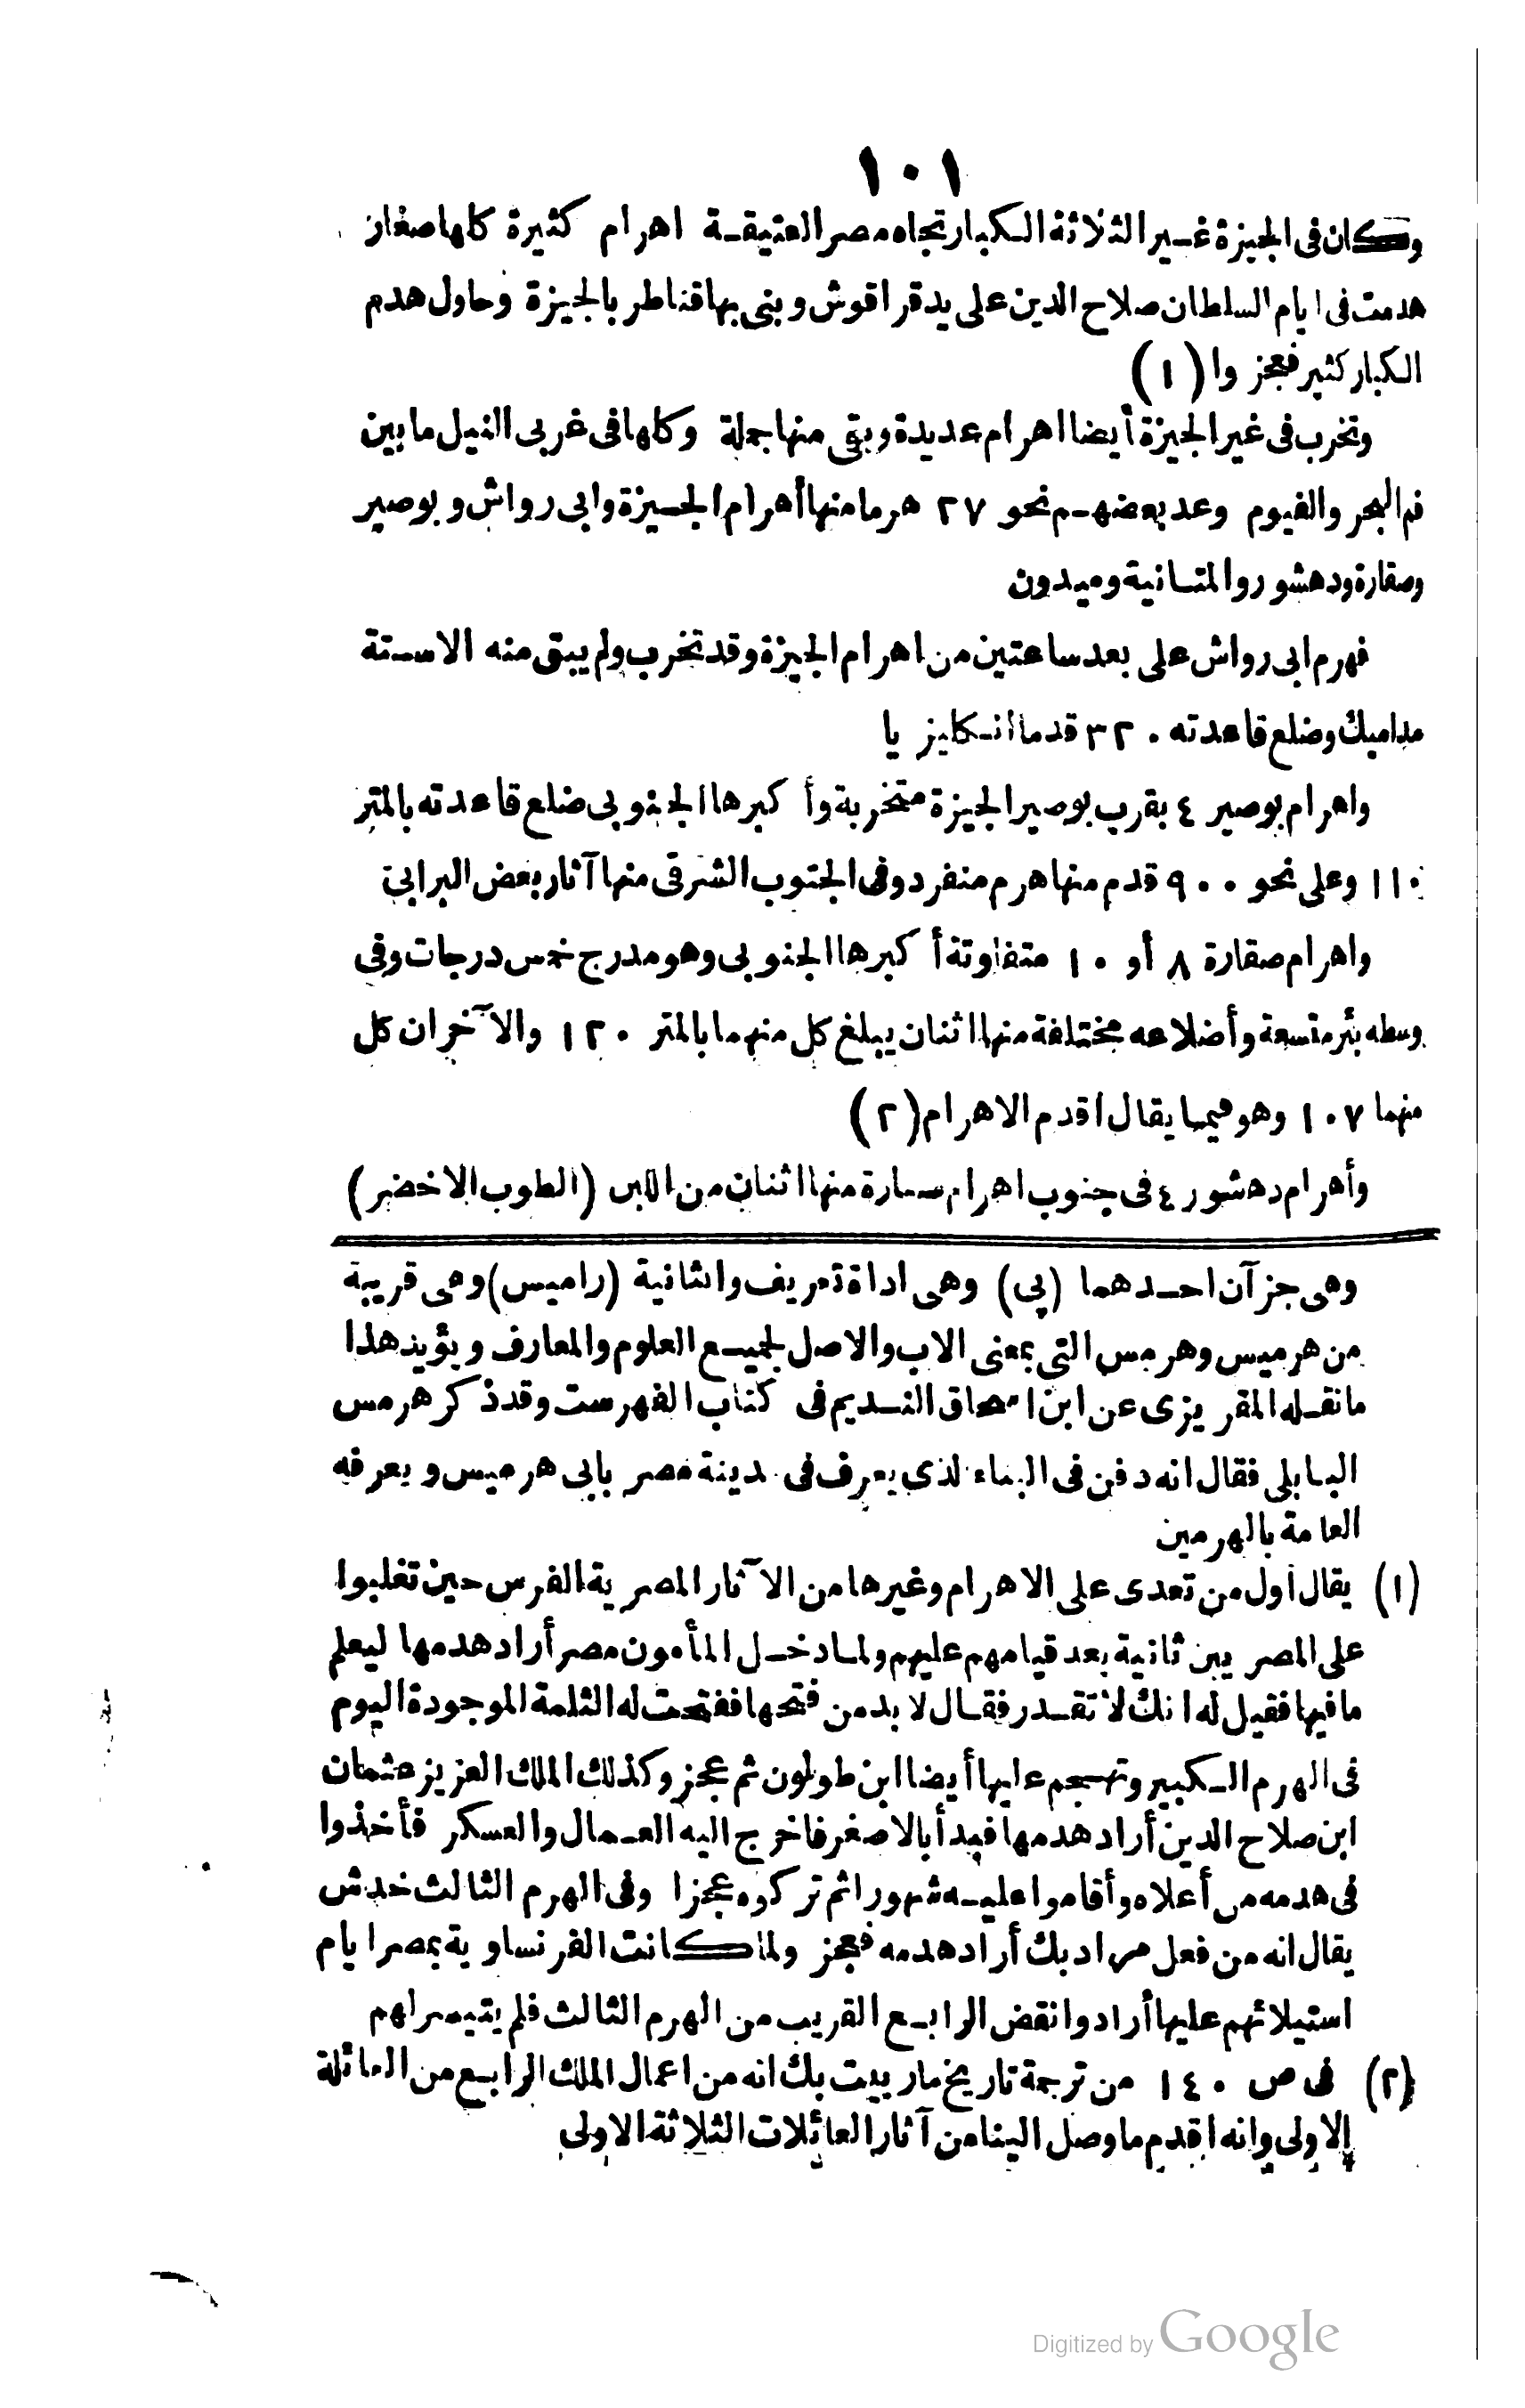 ١٠١
وكان فى الجيزة غير الثلاثة الكبار تجاه مصر العتيقة اهرام كثيرة كلها صغار
هدمت فى ايام السلطان صلاح الدين على يد قراقوش وبنى بها قناطر بالجيزة وحاول هدم
الكبار كثير فعجزوا (١)
وتخرب فى غير الجيزة أيضا اهرام عديدة وبقى منها جملة وكلها فى غربى النيل ما بين
فم البحر والفيوم وعد بعضهم نحو ٢٧ هرما منها أهرام الجيزة وابى رواش وبوصير
وصقارة ودهشور والمتانية وميدون
فهرم ابى رواش على بعد ساعتين من اهرام الجيزة وقد تخرب ولم يبق منه الا ستة
مداميك وضلع قاعدته ٣٢٠ قدما انكليزيا
واهرام بوصير ٤ بقرب بوصير الجيزة متخربة وأكبرها الجنوبى ضلع قاعدته بالمتر
١١٠ وعلى نحو ٩٠٠ قدم منها هرم منفرد وفى الجنوب الشرقى منها آثار بعض البرابى
واهرام صقارة ٨ أو ١٠ متفاوتة أكبرها الجنوبى وهو مدرج خمس درجات وفى
وسطه بئر متسعة وأضلاعه مختلفة منها اثنان يبلغ كل منهما بالمتر ١٢٠ والآخران كل
منهما ١٠٧ وهو فيما يقال اقدم الاهرام (٢)
وأهرام دهشور ٤ فى جنوب اهرام سـارة منها اثنان من اللبن (الطوب الاخضر)
وهى جزآن احدهما (پى) وهى اداة تعريف والثانية (راميس) وهى قريبة
من هرميس وهرمس التى بمعنى الاب والاصل لجميع العلوم والمعارف ويؤيد هذا
ما نقله المقريزى عن ابن اسحاق النديم فى كتاب الفهرست وقد ذكر هرمس
البابلى فقال انه دفن فى البناء الذى يعرف فى مدينة مصر بابى هرميس ويعرفه
العامة بالهرمين
(١) يقال اول من تعدى على الاهرام وغيرها من الآثار المصرية الفرس حين تغلبوا
على المصريين ثانية بعد قيامهم عليهم ولما دخل المأمون مصر أراد هدمها ليعلم
ما فيها فقيل له انك لا تقدر فقال لا بد من فتحها ففتحت له الثلمة الموجودة اليوم
فى الهرم الكبير وتهجم عليها أيضا ابن طولون ثم عجز وكذلك الملك العزيز عثمان
ابن صلاح الدين أراد هدمها فبدأ بالاصغر فاخرج اليه العمال والعسكر فأخذوا
فى هدمه من أعلاه وأقاموا عليه شهورا ثم تركوه عجزا وفى الهرم الثالث خدش
يقال انه من فعل مراد بك أراد هدمه فعجز ولما كانت الفرنساوية بمصر ايام
استيلائهم عليها أرادوا نقض الرابع القريب من الهرم الثالث فلم يتيسر لهم
(٢) فى ص ١٤٠ من ترجمة تاريخ مارييت بك انه من اعمال الملك الرابع من العائلة
الاولى وانه اقدم ما وصل الينا من آثار العائلات الثلاثة الاولى
Digitized by Google